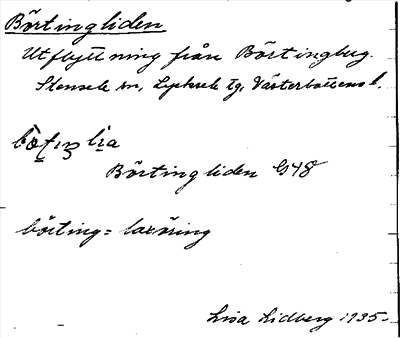 Börtingliden
Utflyttning från Börtingberg.
Stensele sn, Lycksele tg, Västerbottens l.
lìa
Börtingliden G48
börting = laxöring
Lisa Lidberg 1935.